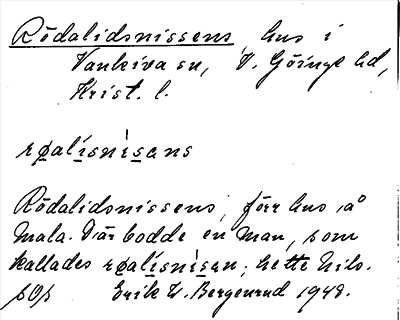 Rödalidsnissens, hus i
Vankiva sn, V. Göinge hd,
Krist. l.
røalisnisans
Rödalidsnissens, förr hus å
Mala. Där bodde en man, som
kallades røalisnisen; hette Nils.
sOs Erik W. Bergenrud 1948.